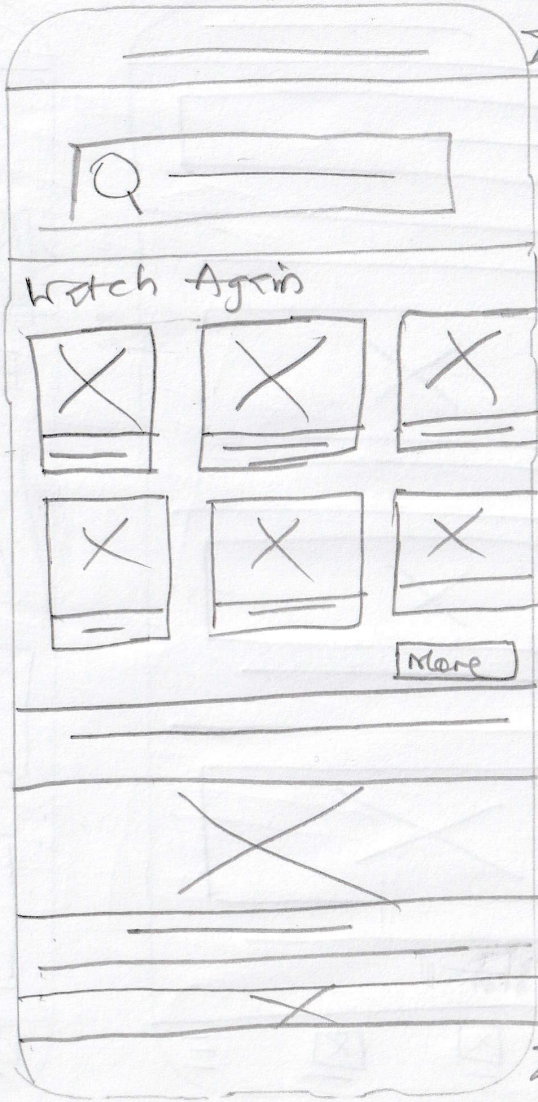 Watch Again
More